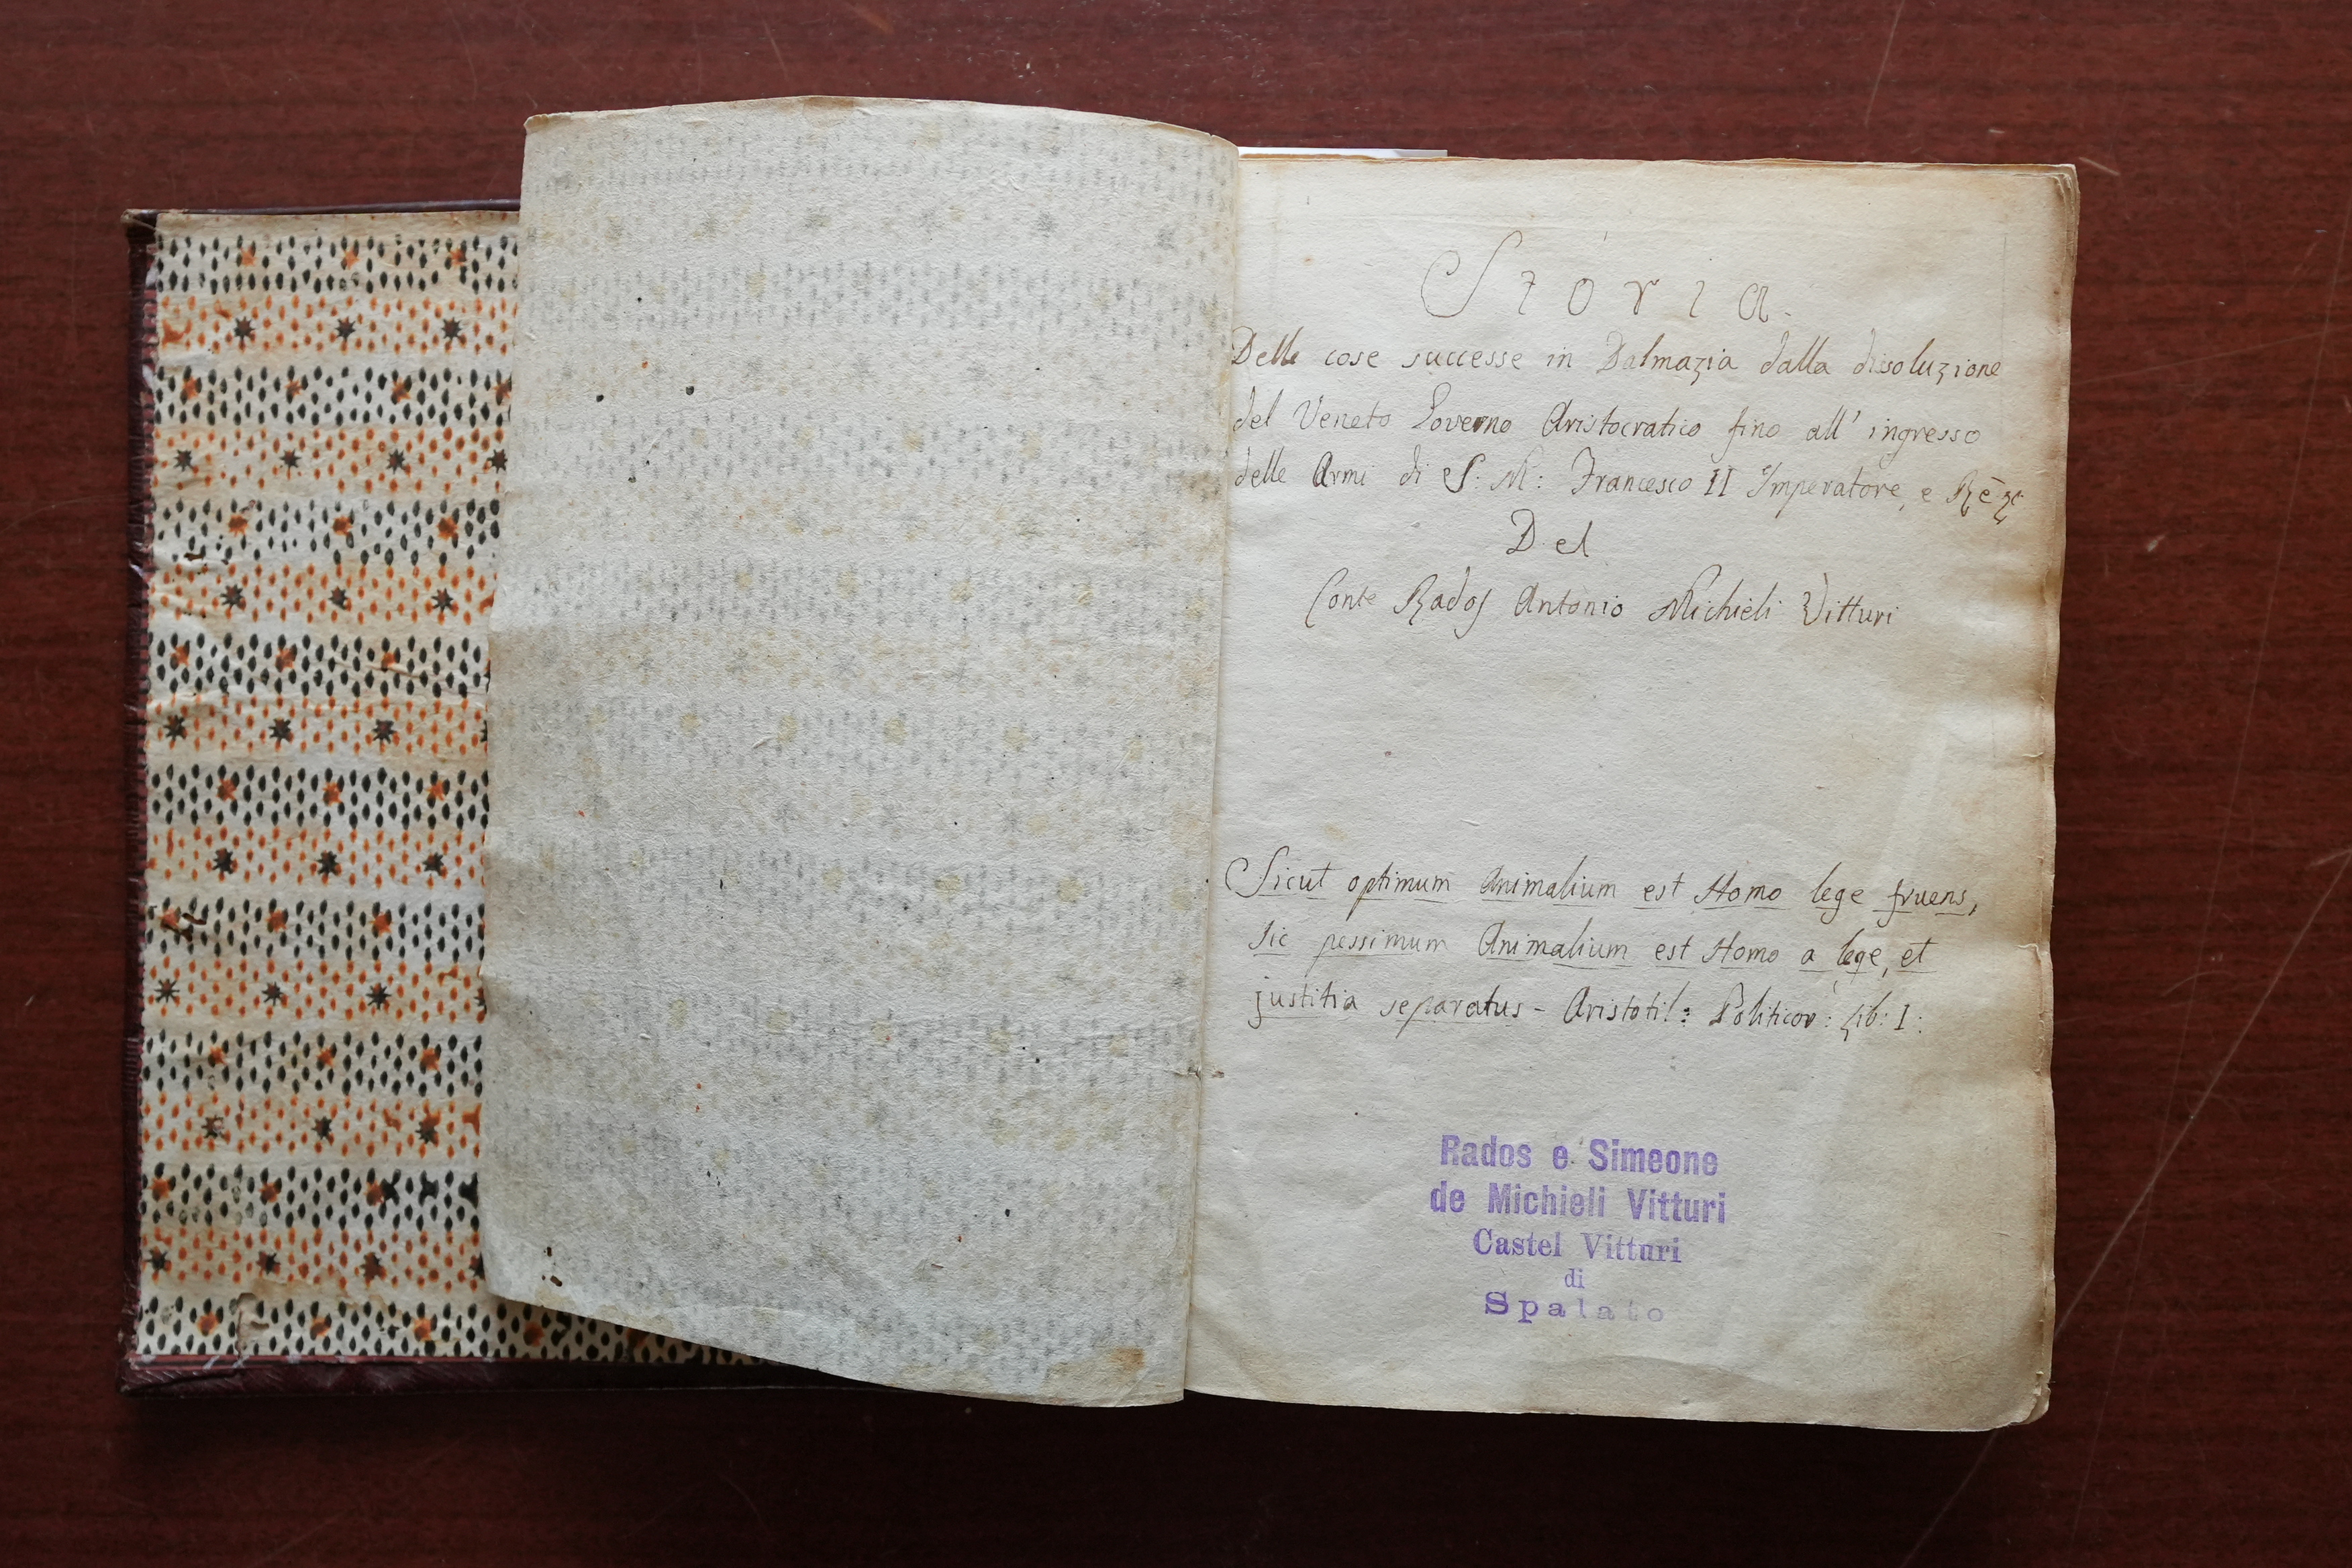 Storia.
Delle cose successe in Dalmazia dalla dissoluzione
del Veneto Governo Aristocratico fino all' ingresso
delle Armi di S: M: Francesco II Imperatore, e Rè
Del
Conte Rados Antonio Michieli Vitturi
Sicut optimum Animalium est Homo lege fruens,
sic pessimum Animalium est Homo a lege, et
justitia separatus - Aristotil: Politicor: Lib: I:
Rados e Simeone
de Michieli Vitturi
Castel Vitturi
di
Spalato